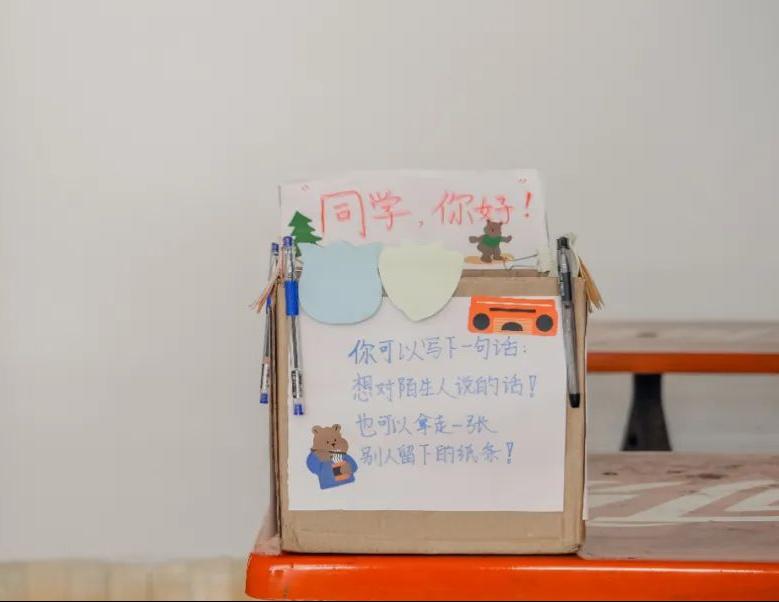 "同学,你好!"
你可以写下一句话:
想对陌生人说的话!
也可以拿走一张
别人留下的纸条!